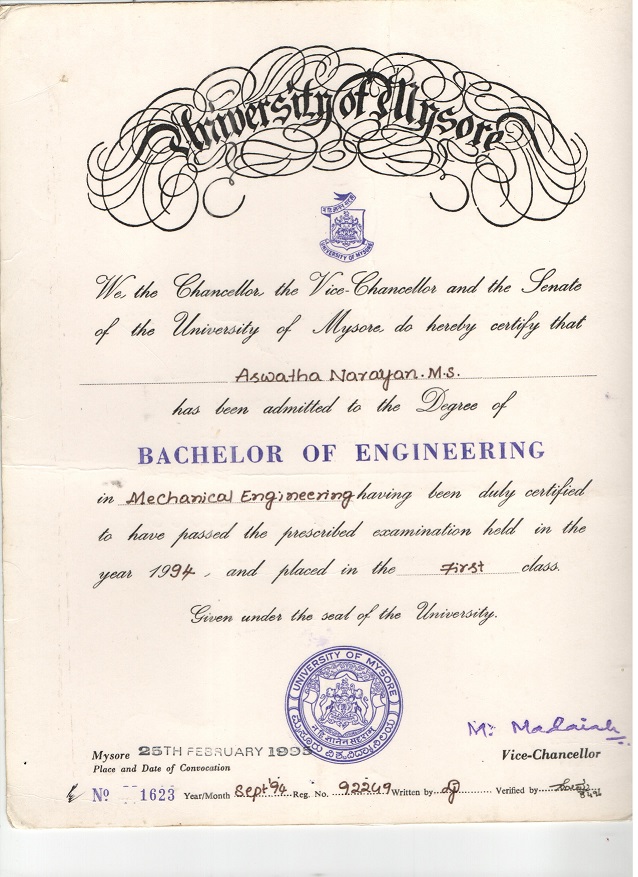 University of Mysore
UNIVERSITY OF MYSORE
We, the Chancellor, the Vice-Chancellor and the Senate
of the University of Mysore, do hereby certify that
Aswatha Narayan. M.S.
has been admitted to the Degree of
BACHELOR OF ENGINEERING
in Mechanical Engineering having been duly certified
to have passed the prescribed examination held in the
year 1994, and placed in the First class.
Given under the seal of the University.
UNIVERSITY OF MYSORE
M. Madaiah
Mysore 25TH FEBRUARY 1995
Vice-Chancellor
Place and Date of Convocation
No 1623 Year/Month Sept'94 Reg. No. 92249 Written by Verified by